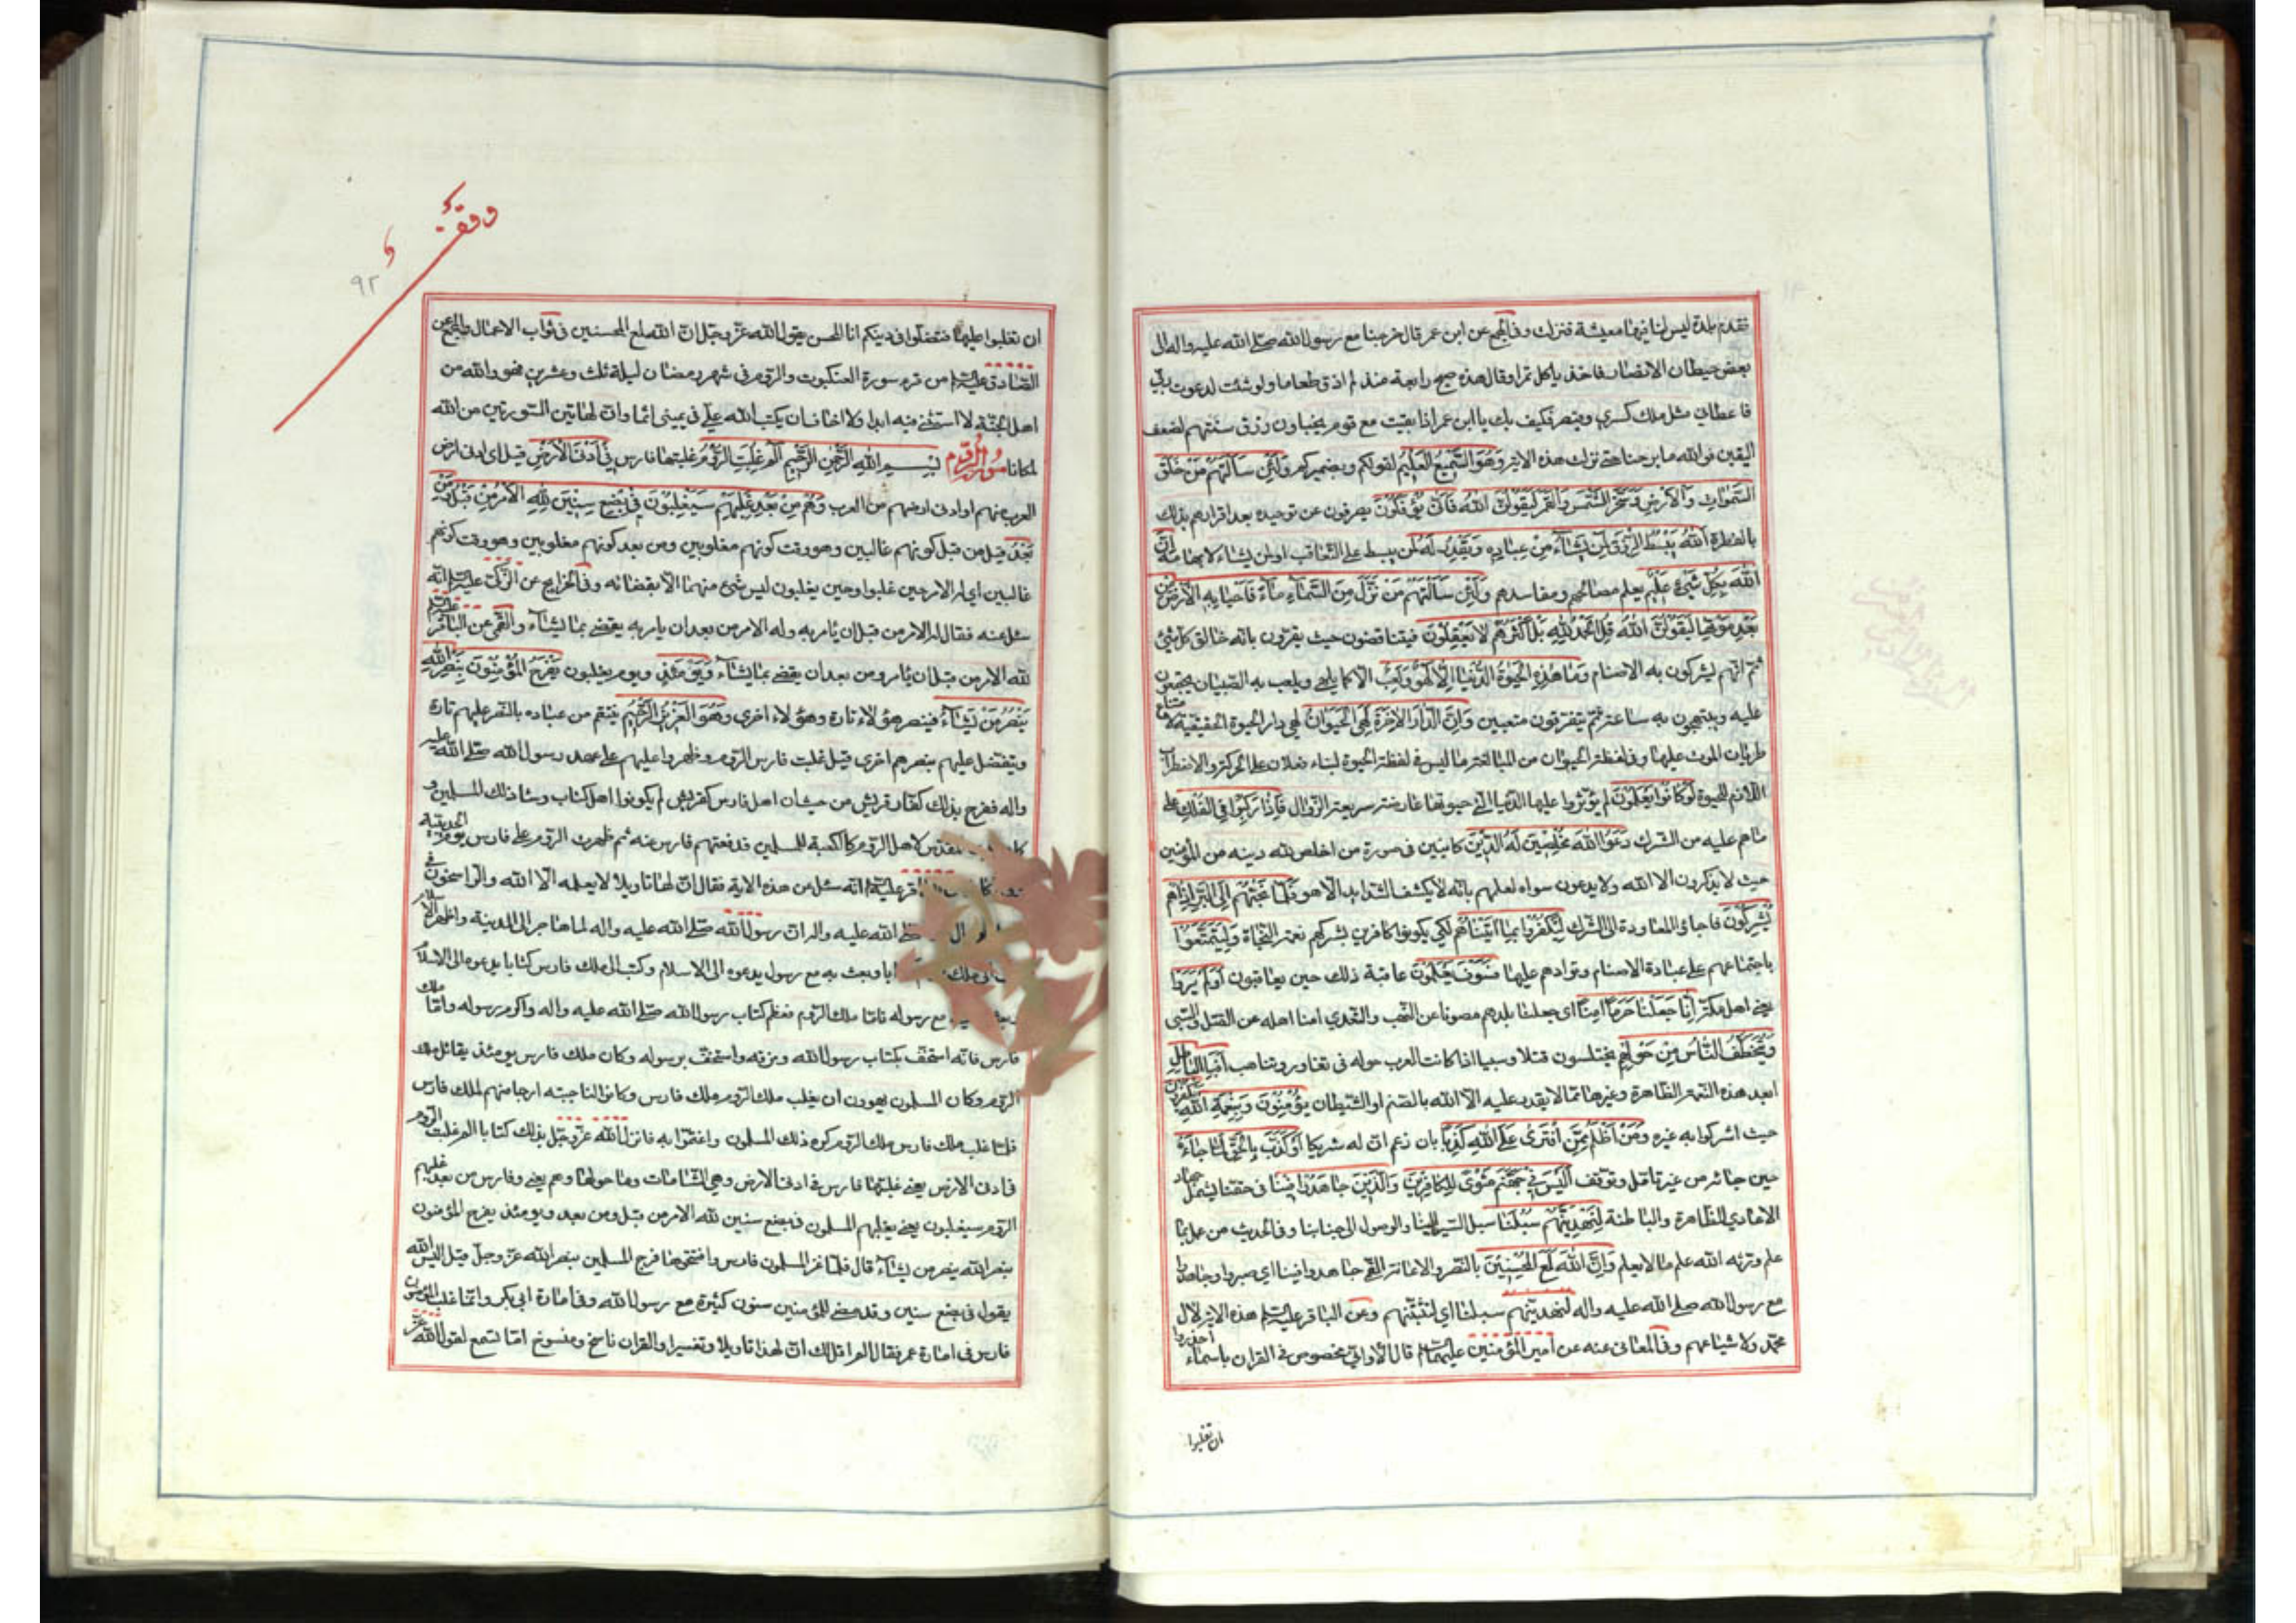 فنقدم بلدة ليس لنا فيها معيشة فنزلت وفي المجمع عن ابن عمر قال خرجنا مع رسول الله صلى الله عليه واله الى
بعض حيطان الانصار فاخذ ياكل تمرا وقال هذه صبح رابعة منذ لم اذق طعاما ولو شئت لدعوت ربي
فاعطاني مثل ملك كسرى وقيصر فكيف بك يا ابن عمر اذا بقيت مع قوم يخبأون رزق سنتهم لضعف
اليقين فوالله ما برحنا حتى نزلت هذه الاية وَهُوَ السَّمِيعُ الْعَلِيمُ لقولكم وبضميركم وَلَئِنْ سَأَلْتَهُمْ مَنْ خَلَقَ
السَّمٰوَاتِ وَالْأَرْضَ وَسَخَّرَ الشَّمْسَ وَالْقَمَرَ لَيَقُولُنَّ اللّٰهُ فَأَنّٰى يُؤْفَكُونَ يصرفون عن توحيده بعد اقرارهم بذلك
بالفطرة اَللّٰهُ يَبْسُطُ الرِّزْقَ لِمَنْ يَشَاءُ مِنْ عِبَادِهِ وَيَقْدِرُ لَهُ لمن يبسط على التعاقب او لمن يشاء لابهامه إِنَّ
اللّٰهَ بِكُلِّ شَيْءٍ عَلِيمٌ يعلم مصالحهم ومفاسدهم وَلَئِنْ سَأَلْتَهُمْ مَنْ نَزَّلَ مِنَ السَّمَاءِ مَاءً فَأَحْيَا بِهِ الْأَرْضَ مِنْ
بَعْدِ مَوْتِهَا لَيَقُولُنَّ اللّٰهُ قُلِ الْحَمْدُ لِلّٰهِ بَلْ أَكْثَرُهُمْ لَا يَعْقِلُونَ فيتناقضون حيث يقرون بانه خالق كل شيء
ثم انهم يشركون به الاصنام وَمَا هٰذِهِ الْحَيٰوةُ الدُّنْيَا إِلَّا لَهْوٌ وَلَعِبٌ الا كما يلهى ويلعب به الصبيان يجتمعون
عليه ويبتهجون به ساعة ثم يتفرقون متعبين وَإِنَّ الدَّارَ الْآخِرَةَ لَهِيَ الْحَيَوَانُ لهي دار الحيوة الحقيقية لامتناع
طريان الموت عليها وفي لفظة الحيوان من المبالغة ما ليس في لفظة الحيوة لبناء فعلان على الحركة والاضطراب
اللازم للحيوة لَوْ كَانُوا يَعْلَمُونَ لم يؤثروا عليها الدنيا التي حيوتها عارضة سريعة الزوال فَإِذَا رَكِبُوا فِي الْفُلْكِ على
ما هم عليه من الشرك دَعَوُا اللّٰهَ مُخْلِصِينَ لَهُ الدِّينَ كائنين في صورة من اخلص لله دينه من المؤمنين
حيث لا يذكرون الا الله ولا يدعون سواه لعلمهم بانه لا يكشف الشدايد الا هو فَلَمَّا نَجَّيٰهُمْ إِلَى الْبَرِّ إِذَا هُمْ
يُشْرِكُونَ فاجاؤا المعاودة الى الشرك لِيَكْفُرُوا بِمَا آتَيْنَاهُمْ لكي يكونوا كافرين بشركهم نعمة النجاة وَلِيَتَمَتَّعُوا
باجتماعهم على عبادة الاصنام وتوادهم عليها فَسَوْفَ يَعْلَمُونَ عاقبة ذلك حين يعاقبون أَوَلَمْ يَرَوْا
يعني اهل مكة أَنَّا جَعَلْنَا حَرَمًا آمِنًا اي جعلنا بلدهم مصونا عن النهب والتعدي امنا اهله عن القتل والسبي
وَيُتَخَطَّفُ النَّاسُ مِنْ حَوْلِهِمْ يختلسون قتلا وسبيا اذا كانت العرب حوله في تغاور وتناهب أَفَبِالْبَاطِلِ
ابعد هذه النعمة الظاهرة وغيرها مما لا يقدر عليه الا الله بالصنم او الشيطان يُؤْمِنُونَ وَبِنِعْمَةِ اللّٰهِ يَكْفُرُونَ
حيث اشركوا به غيره وَمَنْ أَظْلَمُ مِمَّنِ افْتَرٰى عَلَى اللّٰهِ كَذِبًا بان زعم ان له شريكا أَوْ كَذَّبَ بِالْحَقِّ لَمَّا جَاءَهُ
حين جائه من غير تامل وتوقف أَلَيْسَ فِي جَهَنَّمَ مَثْوًى لِلْكَافِرِينَ وَالَّذِينَ جَاهَدُوا فِينَا في حقنا ليشمل جهاد
الاعادي الظاهرة والباطنة لَنَهْدِيَنَّهُمْ سُبُلَنَا سبل السير الينا والوصول الى جنابنا وفي الحديث من عمل بما
علم ورثه الله علم ما لا يعلم وَإِنَّ اللّٰهَ لَمَعَ الْمُحْسِنِينَ بالنصر والاعانة القمي جاهدوا فينا اي صبروا وجاهدوا
مع رسول الله صلى الله عليه واله لنهدينهم سبلنا اي لنثبتنهم وعن الباقر عليه السلام هذه الاية لال
محمد ولاشياعهم وفي المعاني عنه عن امير المؤمنين عليهما السلام قال الا واني مخصوص في القران باسماء احذروا
ان تغلبوا
وقف
٩٢
ان تغلبوا عليها فتضلوا في دينكم انا المحسن يقول الله عز وجل ان الله لمع المحسنين في ثواب الاعمال والمجمع عن
الصادق عليه السلام من قرء سورة العنكبوت والروم في شهر رمضان ليلة ثلث وعشرين فهو والله من
اهل الجنة لا استثني فيه ابدا ولا اخاف ان يكتب الله علي في يميني اثما وان لهاتين السورتين من الله
لمكانا سورة الروم بِسْمِ اللّٰهِ الرَّحْمٰنِ الرَّحِيمِ الم غُلِبَتِ الرُّومُ غلبتها فارس فِي أَدْنَى الْأَرْضِ قيل اي ادنى ارض
العرب منهم او ادنى ارضهم من العرب وَهُمْ مِنْ بَعْدِ غَلَبِهِمْ سَيَغْلِبُونَ فِي بِضْعِ سِنِينَ لِلّٰهِ الْأَمْرُ مِنْ قَبْلُ وَمِنْ
بَعْدُ قيل من قبل كونهم غالبين وهو وقت كونهم مغلوبين ومن بعد كونهم مغلوبين وهو وقت كونهم
غالبين اي له الامر حين غلبوا وحين يغلبون ليس شيء منهما الا بقضائه وفي الخرايج عن الزكي عليه السلام انه
سئل عنه فقال له الامر من قبل ان يامر به وله الامر من بعد ان يامر به يقضي بما يشاء والقمي عن الباقر عليه السلام
لله الامر من قبل ان يامر ومن بعد ان يقضي بما يشاء وَيَوْمَئِذٍ ويوم يغلبون يَفْرَحُ الْمُؤْمِنُونَ بِنَصْرِ اللّٰهِ
يَنْصُرُ مَنْ يَشَاءُ فينصر هؤلاء تارة وهؤلاء اخرى وَهُوَ الْعَزِيزُ الرَّحِيمُ ينتقم من عباده بالنصر عليهم تارة
ويتفضل عليهم بنصرهم اخرى قيل غلبت فارس الروم وظهروا عليهم على عهد رسول الله صلى الله عليه
واله ففرح بذلك كفار قريش من حيث ان اهل فارس كقريش لم يكونوا اهل كتاب وساء ذلك المسلمين و
كان المقدس لاهل الروم كالكعبة للمسلمين فدفعتهم فارس عنه ثم ظهرت الروم على فارس يوم الحديبية
الباقر عليه السلام انه سئل عن هذه الاية فقال ان لها تاويلا لا يعلمه الا الله والراسخون في
الله عليه واله ان رسول الله صلى الله عليه واله لما هاجر الى المدينة واظهر الاسلام
الى ملك وبعث به مع رسول يدعوه الى الاسلام وكتب الى ملك فارس كتابا يدعوه الى الاسلام
مع رسوله فاما ملك الروم فعظم كتاب رسول الله صلى الله عليه واله واكرم رسوله واما ملك
فارس فانه استخف بكتاب رسول الله ومزقه واستخف برسوله وكان ملك فارس يومئذ يقاتل ملك
الروم وكان المسلمون يهوون ان يغلب ملك الروم ملك فارس وكانوا لناحيته ارجا منهم لملك فارس
فلما غلب ملك فارس ملك الروم كره ذلك المسلمون واغتموا به فانزل الله عز وجل بذلك كتابا الم غلبت الروم
في ادنى الارض يعني غلبتها فارس في ادنى الارض وهي الشامات وما حولها وهم يعني وفارس من بعد غلبهم
الروم سيغلبون يعني يغلبهم المسلمون في بضع سنين لله الامر من قبل ومن بعد ويومئذ يفرح المؤمنون
بنصر الله ينصر من يشاء قال فلما غزا المسلمون فارس وافتتحوها فرح المسلمون بنصر الله عز وجل قيل اليس الله
يقول في بضع سنين وقد مضى للمؤمنين سنون كثيرة مع رسول الله وفي امارة ابي بكر وانما غلب المؤمنون
فارس في امارة عمر فقال الم اقل لك ان لهذا تاويلا وتفسيرا والقران ناسخ ومنسوخ اما تسمع لقول الله عز